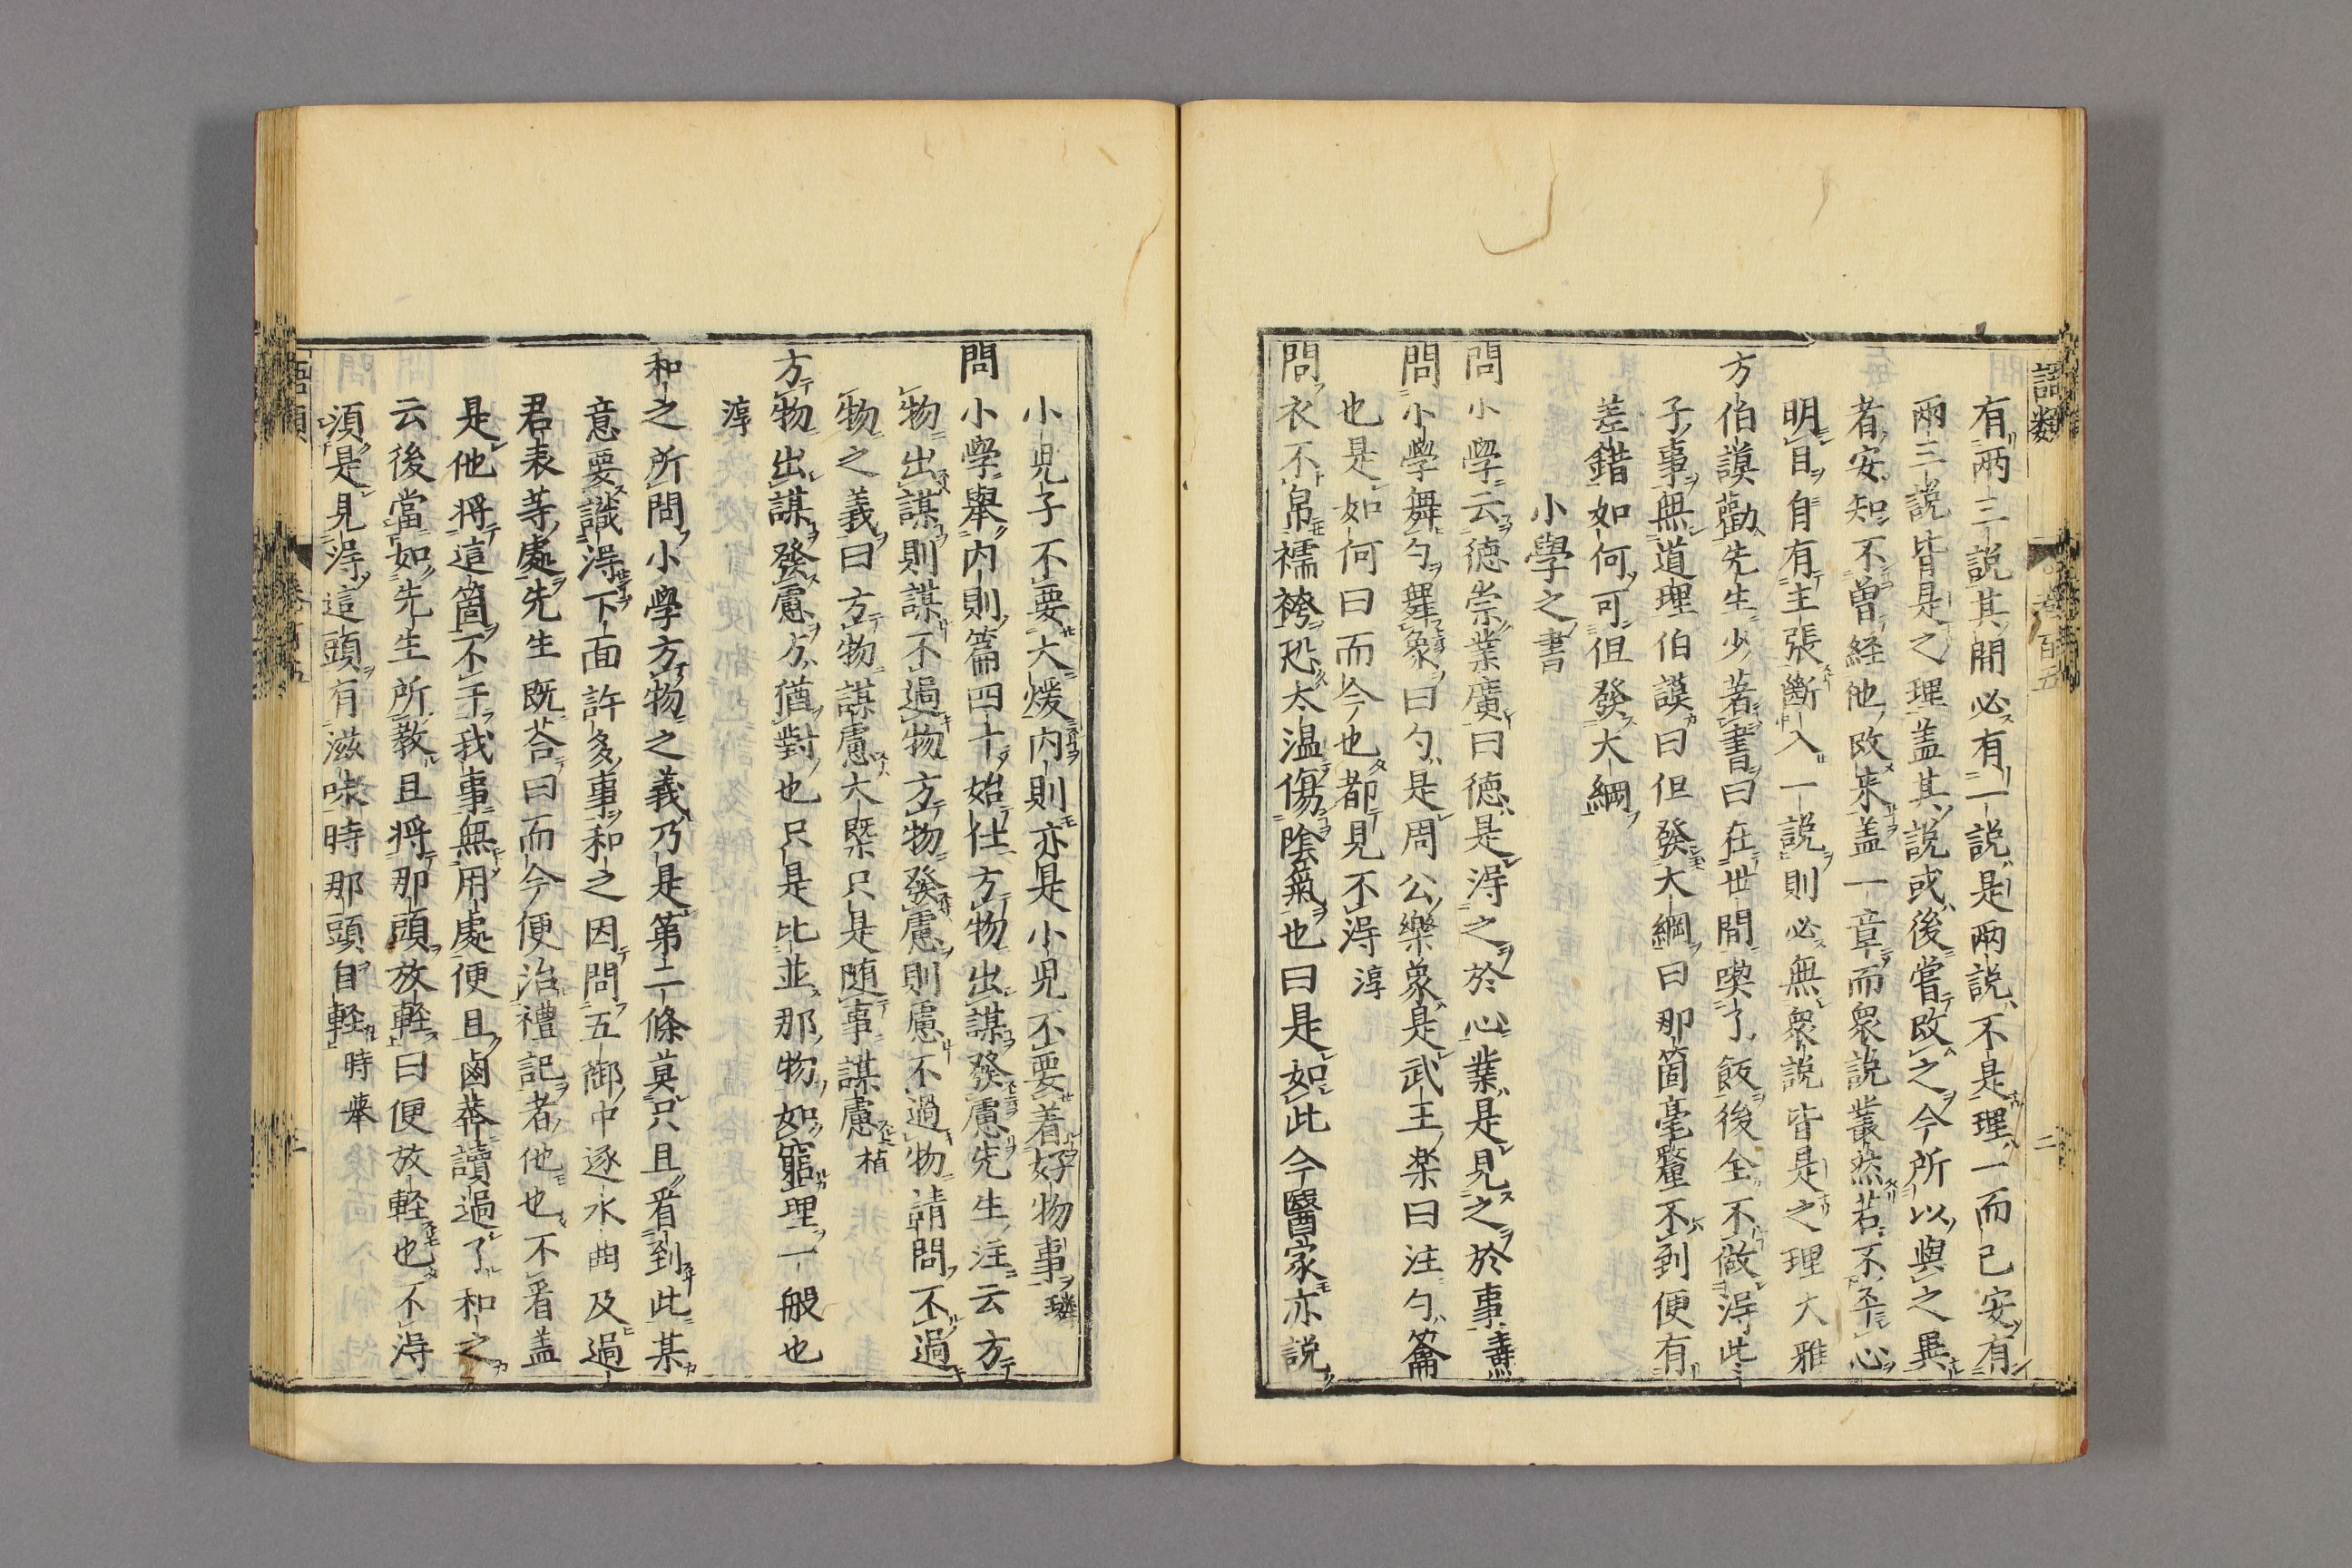 語類 卷百五 二
有兩三說其間必有一說是兩說不是理一而已安有
兩三說皆是之理盖其說或後嘗改之今所以與之異
者安知不曾経他改来盖一章而衆說叢然若不平心
明目自有主張斷入一說則必無衆說皆是之理大雅
方伯謨勸先生少著書曰在世間喫了飯後全不做得此
子事無道理伯謨曰但發大綱曰那箇毫釐不到便有
差錯如何可但發大綱
小學之書
問小學云德崇業廣曰德是得之於心業是見之於事燾
問小學舞勺舞象曰勺是周公樂象是武王楽曰注勺籥
也是如何曰而今也都見不得淳
問衣不帛襦袴恐太温傷陰氣也曰是如此今醫家亦說
小兒子不要大煖内則亦是小兒不要着好物事璘
問小學舉内則篇四十始仕方物出謀發慮先生注云方
物出謀則謀不過物方物發慮則慮不過物請問不過
物之義曰方物謀慮大槩只是随事謀慮植
方物出謀發慮方猶對也只是比並那物如窮理一般也
淳
和之所問小學方物之義乃是第二條莫只且看到此某
意要識得下面許多事和之因問五御中逐水曲及過
君表等處先生既荅曰而今便治禮記者他也不看盖
是他将這箇不干我事無用處便且鹵莽讀過了和之
云後當如先生所教且将那頭放軽曰便放軽也不得
須是見得這頭有滋味時那頭自軽時舉